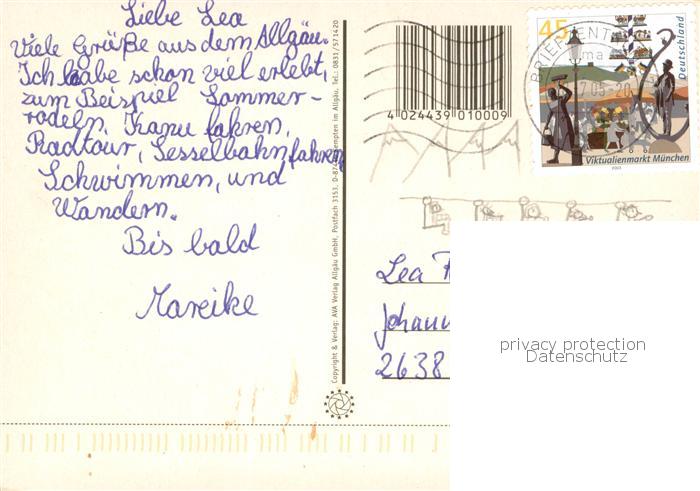 Liebe Lea
Viele Grüße aus dem Allgäu.
Ich habe schon viel erlebt,
zum Beispiel Sommer-
rodeln, Kanu fahren,
Radtour, Sesselbahnfahren
Schwimmen, und
Wandern.
Bis bald
Mareike
Copyright & Verlag: AVA Verlag Allgäu GmbH, Postfach 3153, Kempten im Allgäu, Tel.: 0831/571420
4 024439 010009
BRIEFZENTR
45
Deutschland
Viktualienmarkt München
2003
Lea
Johann
2638
privacy protection
Datenschutz